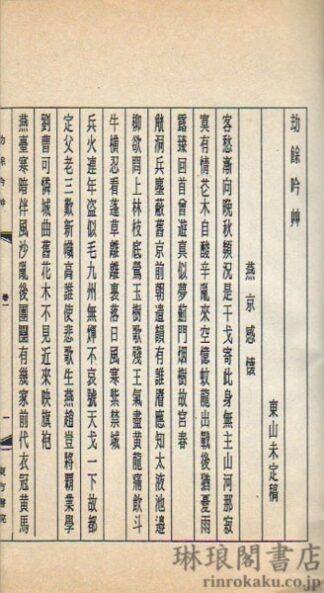 劫餘吟艸
東山未定稿
燕京感懷
客愁漸向晚秋顋況是干戈寄此身無主山河那寂
寞有情花木自酸辛亂來空憶蛟龍出戰後猶憂雨
露臻回首曾遊真似夢薊門烟樹故宮春
澒洞兵塵蔽舊京前朝遺韻有誰賡應知太液池邊
柳欲問上林枝底鶯玉樹歌殘王氣盡黄龍痛飲斗
牛橫忍看蓬草離離裏落日風寒紫禁城
兵火連年盜似毛九州無燀不哀號天戈一下故都
定父老三歎新幟高誰使悲歌生燕趙豈將覇業學
劉曹可憐城曲舊花木不見近來映旗袍
燕臺寒暗伴風沙亂後團圞有幾家前代衣冠黄馬
劫餘吟艸
卷一
一
東方書院
琳琅閣書店
rinrokaku.co.jp